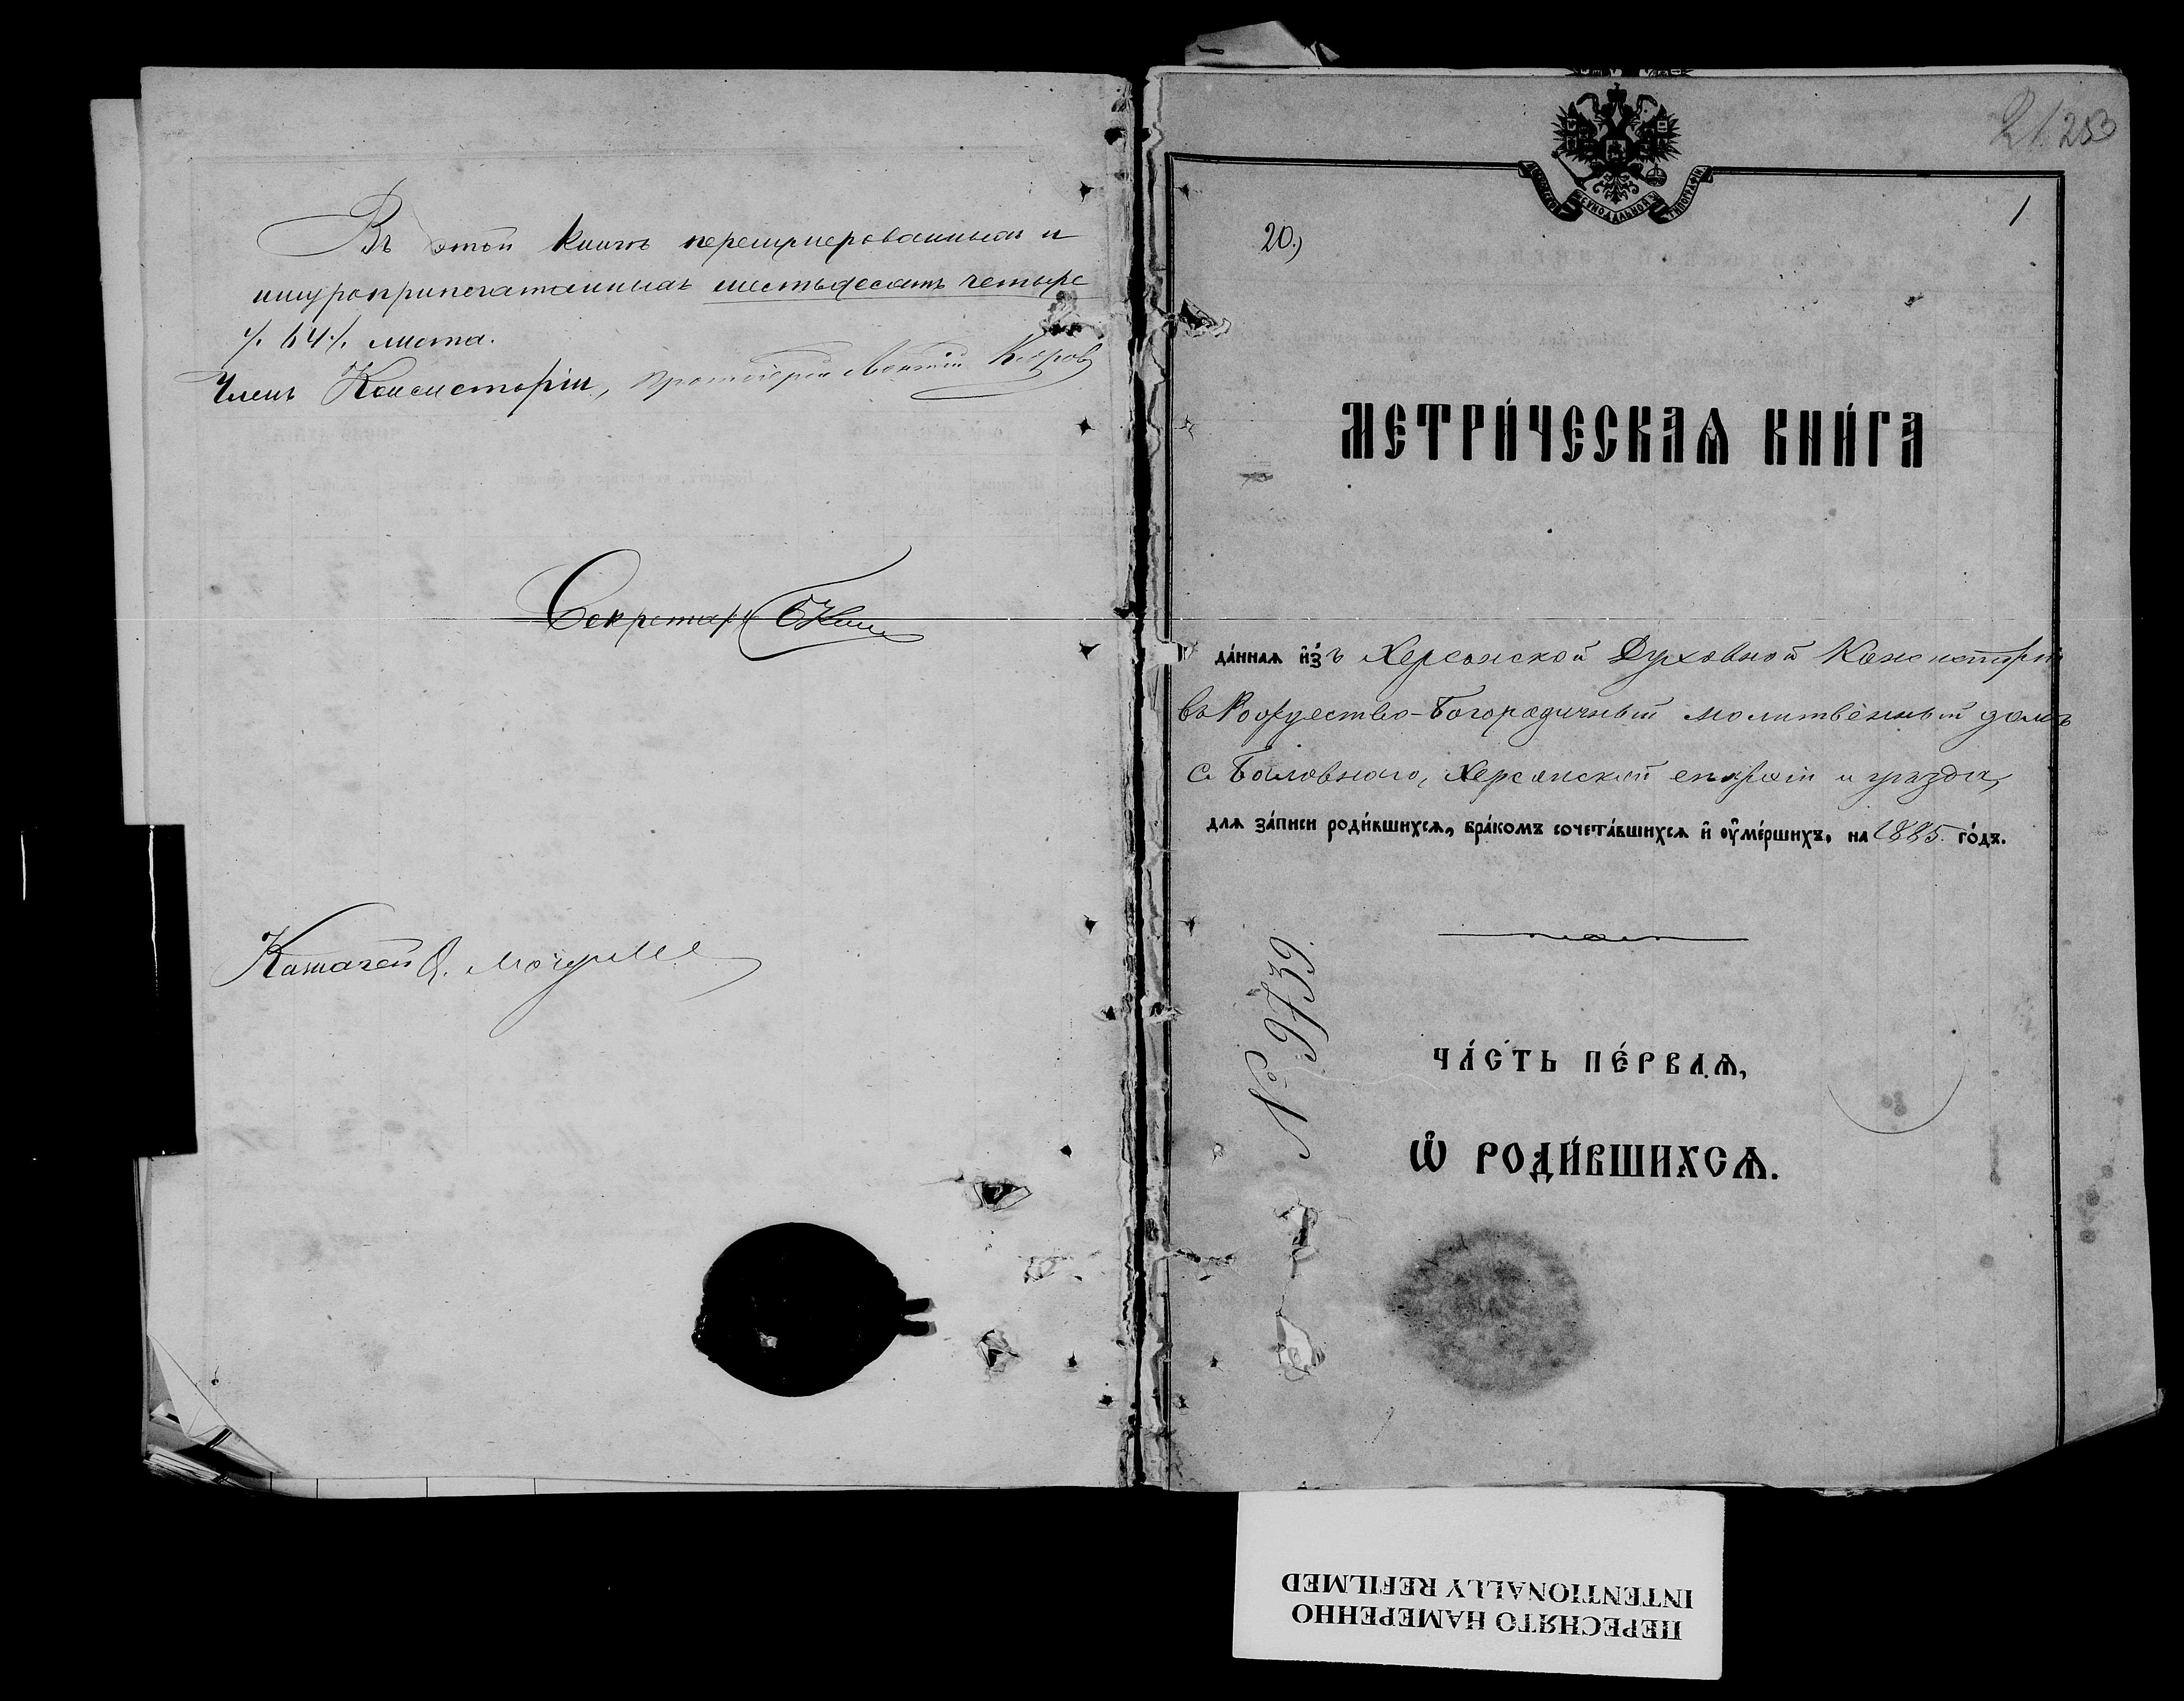 Въ этой книгѣ перенумерованныхъ и
шнуроприпечатанныхъ шестьдесятъ четыре
·/. 64 ·/. листа.
Членъ Консисторіи, Протоіерей
Секретарь
21 253
МОСКОВСКОЙ СѴНОДАЛЬНОЙ ТИПОГРАФІИ
1
20.)
МЕТРИ́ЧЕСКАѦ КНИ́ГА
да́ннаѧ и҆́зъ Херсонской Духовной Консисторіи
въ Рождество-Богородичный молитвенный домъ
с. Баловнаго, Херсонской епархіи и уѣзда,
для за́писи роди́вшихсѧ, бра́комъ сочета́вшихсѧ и҆ оу҆ме́ршихъ, на 1885 го́дъ.
№ 9739.
ЧА́СТЬ ПЕ́РВАѦ,
Ѡ҆ РОДИ́ВШИХСѦ.
ПЕРЕСНЯТО НАМЕРЕННО
INTENTIONALLY REFILMED